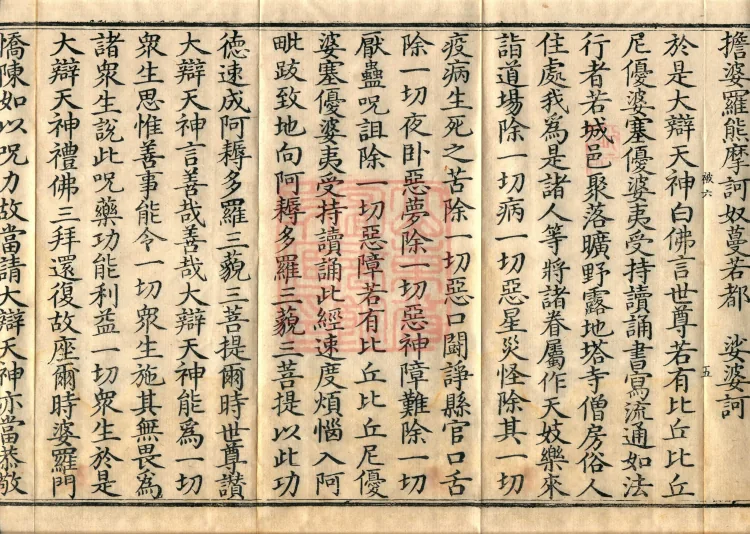 擔婆羅熊摩訶奴蔓若都　娑婆訶
於是大辯天神白佛言世尊若有比丘比丘
被六　五
尼優婆塞優婆夷受持讀誦書寫流通如法
行者若城邑聚落曠野露地塔寺僧房俗人
住處我為是諸人等將諸眷屬作天妓樂來
詣道場除一切病一切惡星災怪除其一切
疫病生死之苦除一切惡口鬪諍縣官口舌
除一切夜卧惡夢除一切惡神障難除一切
厭蠱呪詛除一切惡障若有比丘比丘尼優
婆塞優婆夷受持讀誦此經速度煩惱入阿
毗跋致地向阿耨多羅三藐三菩提以此功
德速成阿耨多羅三藐三菩提爾時世尊讃
大辯天神言善哉善哉大辯天神能為一切
衆生思惟善事能令一切衆生施其無畏為
諸衆生說此呪藥功能利益一切衆生於是
大辯天神禮佛三拜還復故座爾時婆羅門
憍陳如以呪力故當請大辯天神亦當恭敬